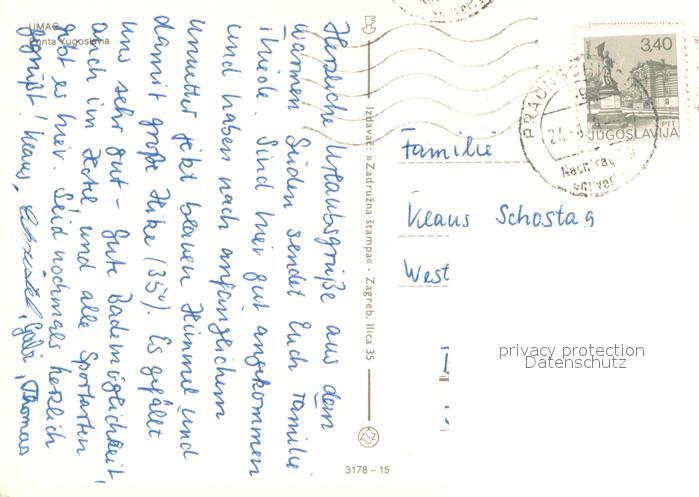 UMAG
Punta Yugoslavia
Herzliche Urlaubsgrüße aus dem
warmen Süden sendet Euch Familie
Sind hier gut angekommen
und haben nach anfänglichem
Unwetter jetzt blauen Himmel und
damit große Hitze (35°). Es gefällt
uns sehr gut - Gute Bademöglichkeit,
auch im Hotel und alle Sportarten
gibt es hier. Seid nochmals herzlich
gegrüßt! Klaus, Gabi, Thomas
Izdavač: »Zadružna štampa« - Zagreb, Ilica 35
3178 - 15
3,40
JUGOSLAVIJA
PTT
Familie
Klaus Schostag
West
privacy protection
Datenschutz